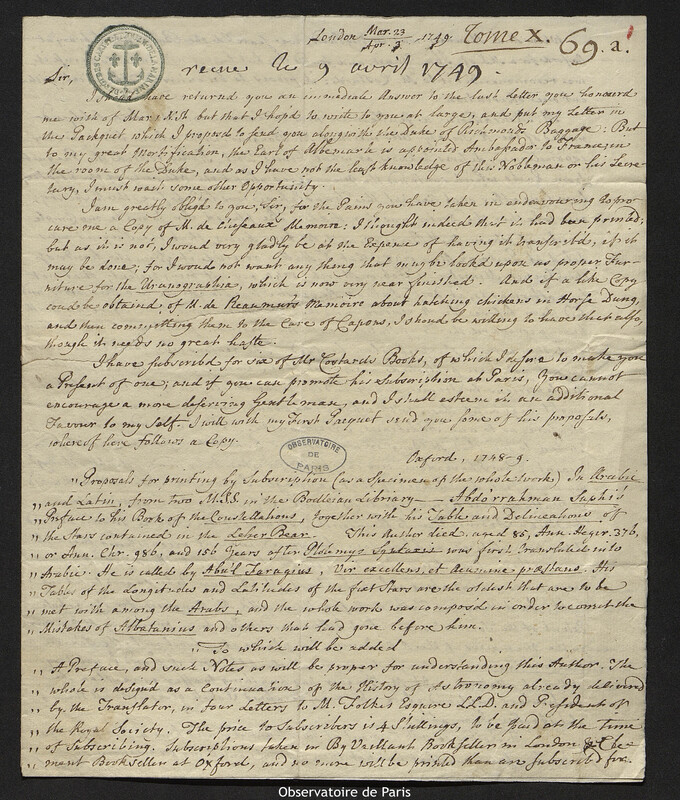 London Mar. 23 / Apr. 3 1749. Tome X. 69. a.
recue le 9 avril 1749.
Sir,
I shoud have returnd you an immediate Answer to the last Letter you honourd
me with of Mar. N.St. but that I hop'd to write to you at large, and put my Letter in
the Packquet which I proposed to send you along with the Duke of Richmonds Baggage: But
to my great Mortification, the Earl of Albemarle is appointed Ambassador to France, in
the room of the Duke, and as I have not the least knowledge of this Nobleman or his Secre-
tary, I must wait some other Opportunity.
I am greatly oblig'd to you, Sir, for the Pains you have taken in endeavouring to pro-
cure me a Copy of M. de Cheseaux Memoire: I thought indeed that it had been printed;
but as it is not, I woud very gladly be at the Expence of having it transcrib'd, if it
may be done; for I woude not want any thing that may be lookd upon as proper Fur-
niture for the Uranographia, which is now very near finished. And if a like Copy
coud be obtaind, of M. de Reaumur's Memoire about hatching chickens in Horse Dung,
and then committing them to the Care of Capons, I shoud be willing to have that also,
though it needs no great haste.
I have subscribd for six of Mr Costards Books, of which I desire to make you
a Present of one; and if you can promote his Subscription at Paris, You cannot
encourage a more deserving Gentleman, and I shall esteem it an additional
Favour to my self. I will with my First Pacquet send you some of his proposals,
whereof here follows a Copy.
OBSERVATOIRE DE PARIS
Oxford, 1748-9.
"Proposals for printing by Subscription (as a Specimen of the whole work) In Arabic
" and Latin, from two M.S.S. in the Bodleian Library — Abdorrahman Suphi's
" Preface to his Book of the Constellations, together with his Table and Delineations of
" the Stars contained in the Lesser Bear. This Author died, aged 85, Ann. Hegir. 376,
" or Ann. Chr. 986, and 156 Years after Ptolemys Syntaxis was first translated into
" Arabic. He is called by Abu'l Faragius, Vir excellens, et Acumine præstans. His
" Table of the Longitudes and Latitudes of the fixt Stars are the oldest that are to be
" met with among the Arabs, and the whole work was composed in order to correct the
" Mistakes of Albatanius and others that had gone before him.
" To which will be added
" A Preface, and such Notes as will be proper for understanding this Author. The
" whole is design'd as a Continuation of the History of Astronomy already delivered
" by the Translator, in four Letters to M. Folkes Esquire LL.D. and President of
" the Royal Society. The price to Subscribers is 4 Shillings, to be paid at the time
" of Subscribing. Subscriptions taken in By Vaillant Bookseller in London & Cle-
" ment Bookseller at Oxford, and no more will be printed than are subscribed for.
Observatoire de Paris